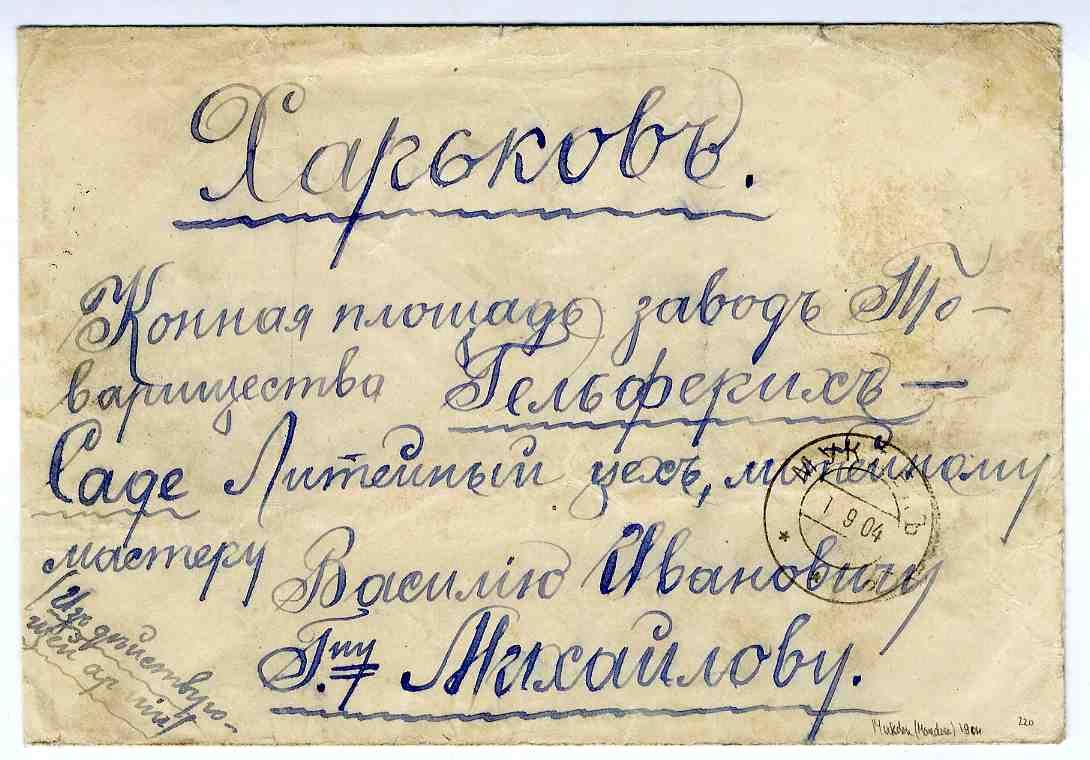 Харьковъ.
Конная площадь заводъ То-
варищества Гельферихъ-
Саде Литейный цехъ, литейному
мастеру Василію Ивановичу
Г.ну Михайлову.
Изъ действую-
щей армии
МУКДЕНЪ
1 9 04
Mukden (Mandsch) 1904
220